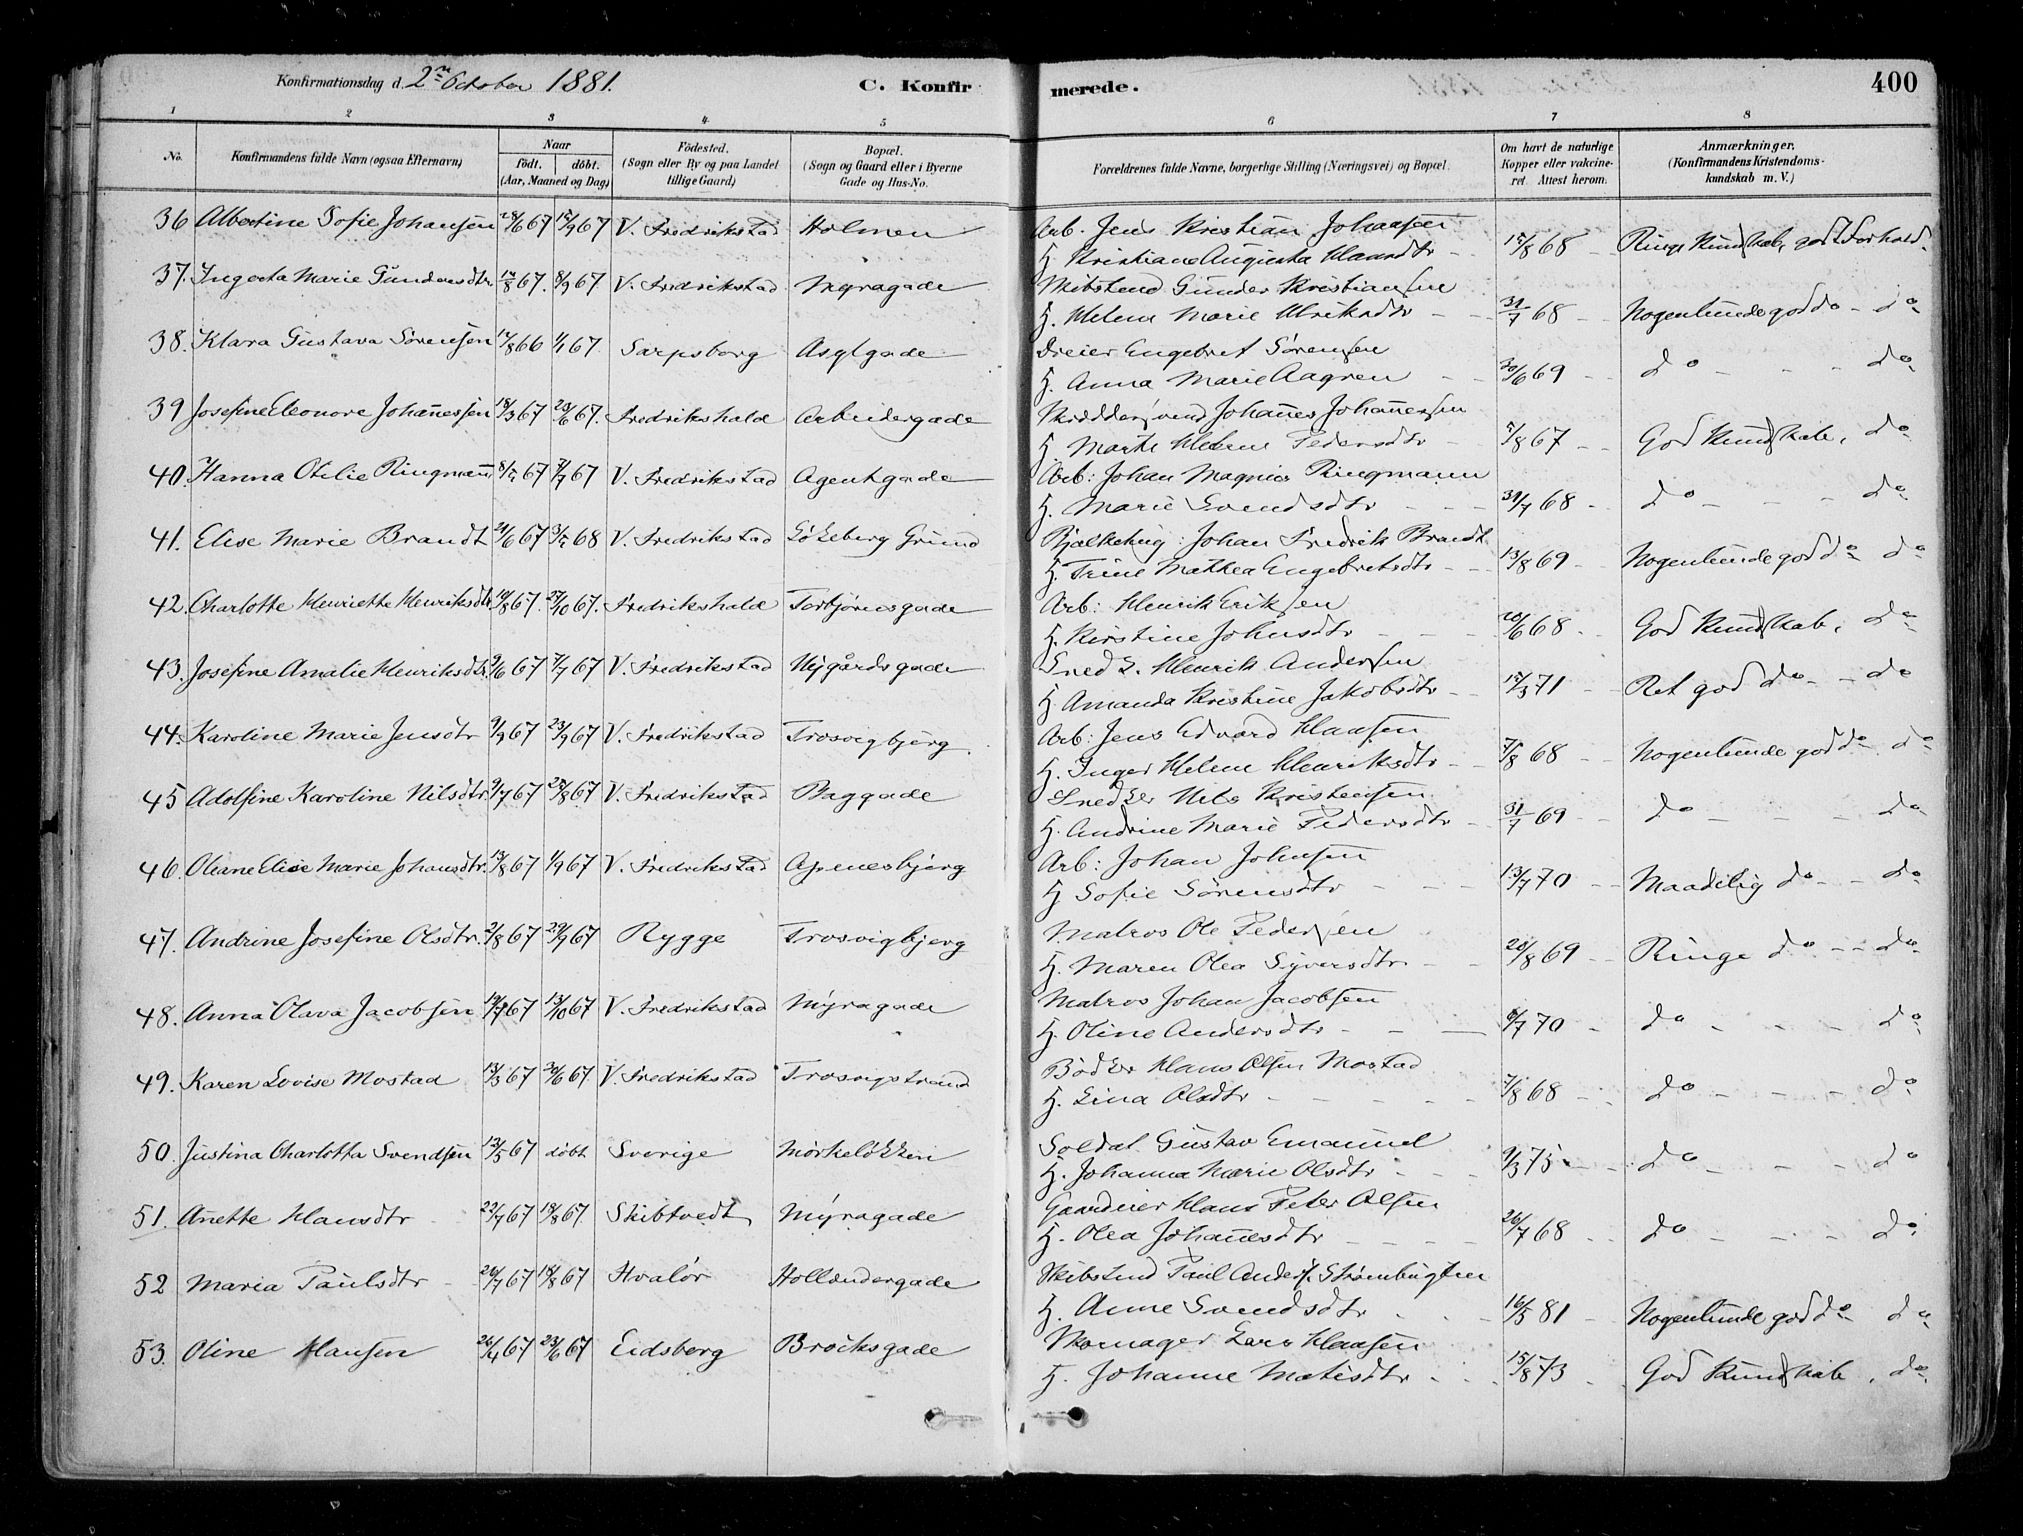 Konfirmationsdag d. 2den October 1881.
C. Konfirmerede.
400
1 2 3 4 5 6 7 8
No.
Konfirmandens fulde Navn (ogsaa Efternavn)
Naar
födt. döbt.
(Aar, Maaned og Dag)
Födested.
(Sogn eller By og paa Landet
tillige Gaard)
Bopæl.
(Sogn og Gaard eller i Byerne
Gade og Hus-No.
Forældrenes fulde Navne, borgerlige Stilling (Næringsvei) og Bopæl.
Om havt de naturlige
Kopper eller vakcine-
ret. Attest herom.
Anmærkninger.
(Konfirmandens Kristendoms-
kundskab m. V.)
36 Albertine Sofie Johansen 28/6 67 15/9 67 V. Fredrikstad Holmen Arb. Jens Kristian Johansen
H. Kristiane Augusta Hansdtr 15/8 68 Ringe Kundskab, godt Forhold.
37. Ingerta Marie Gundersdtr 12/8 67. 8/9 67 V. Fredrikstad Myragade Skibstmd Gunder Kristiansen
H. Helene Marie Ulriksdtr 31/7 68 Nogenlunde god do do
38. Klara Gustava Sörensen 17/8 66 1/1 67 Sarpsborg Asylgade Dreier Engebret Sörensen
H. Anna Marie Aagren 20/6 69 do do
39 Josefine Eleonore Johannessen 18/3 67 23/6 67. Fredrikshald Arbeidergade Skræddersvend Johannes Johannessen
H. Marte Helene Pedersdtr 5/8 67 God Kundskab, do
40. Hanna Otilie Ringmann 8/5 67 7/7 67 V. Fredrikstad Agentgade Arb: Johan Magnus Ringmann
H. Marie Svendsdtr 31/7 68 do do
41. Elise Marie Brandt 21/6 67 3/5 68 V. Fredrikstad Lökeberg Grund Bjelkehug: Johan Fredrik Brandt
H. Trine Mathea Engebretsdtr 13/8 69 Nogenlunde god do do
42. Charlotte Henriette Henriksdtr 14/8 67. 27/10 67. Fredrikshald Torbjörnsgade Arb: Henrik Eriksen
H. Kirstine Johnsdtr 20/6 68 God Kundskab, do
43. Josefine Amalie Henriksdtr. 9/6 67 7/7 67 V. Fredrikstad Nygårdsgade Sned k. Henrik Andersen
H. Amanda Kristine Jakobsdtr 15/3 71 Ret god do do
44. Karoline Marie Jensdtr 9/9 67 23/9 67 V. Fredrikstad Trosvigbjerg. Arb: Jens Edvard Hansen
H. Inger Helene Henriksdtr 7/8 68 Nogenlunde god do do
45 Adolfine Karoline Nilsdtr. 9/7 67 25/8 67 V. Fredrikstad Baggade Snedker Nils Kristensen
H. Andrine Marie Pedersdtr 31/7 69 do do
46. Oleane Elise Marie Johansdtr. 13/8 67 1/9 67 V. Fredrikstad Apenesbjerg Arb: Johan Johnsen
H Sofie Sörensdtr 13/7 70 Maadelig do do
47. Andrine Josefine Olsdtr. 2/8 67 29/9 67 Rygge Trosvigbjerg Matros Ole Pedersen
H. Maren Olea Syversdtr 20/8 69 Ringe do do
48. Anna Olava Jacobsen 19/7 67 13/10 67 V. Fredrikstad Myragade Matros Johan Jacobsen
H. Oline Andersdtr 8/7 70 do do
49. Karen Lovise Mostad 13/3 67 30/6 67. V. Fredrikstad Trosvigstrand Bödker Hans Olsen Mostad
H. Lina Olsdtr 7/8 68 do do
50. Justina Charlotta Svendsen 13/5 67 döbt Sverige Mörkelökken Soldat Gustav Emanuel
H. Johanna Marie Olsdtr 9/3 75 do do
51. Anette Hansdtr 22/7 67 18/8 67. Skibtvedt Myragade Gaardeier Hans Peter Olsen
H. Olea Johannesdtr 26/7 68 do do
52 Maria Paulsdtr 20/7 67 18/8 67 Hvalör Hollændergade Skibstmd Paul Anders. Strömbugten
H. Anne Svendsdtr 16/5 81 Nogenlunde god do do
53. Oline Hansen 26/4 67 23/6 67 Eidsberg Brocksgade Skomager Lars Hansen
H. Johanne Matisdtr 15/8 73 God Kundskab, do